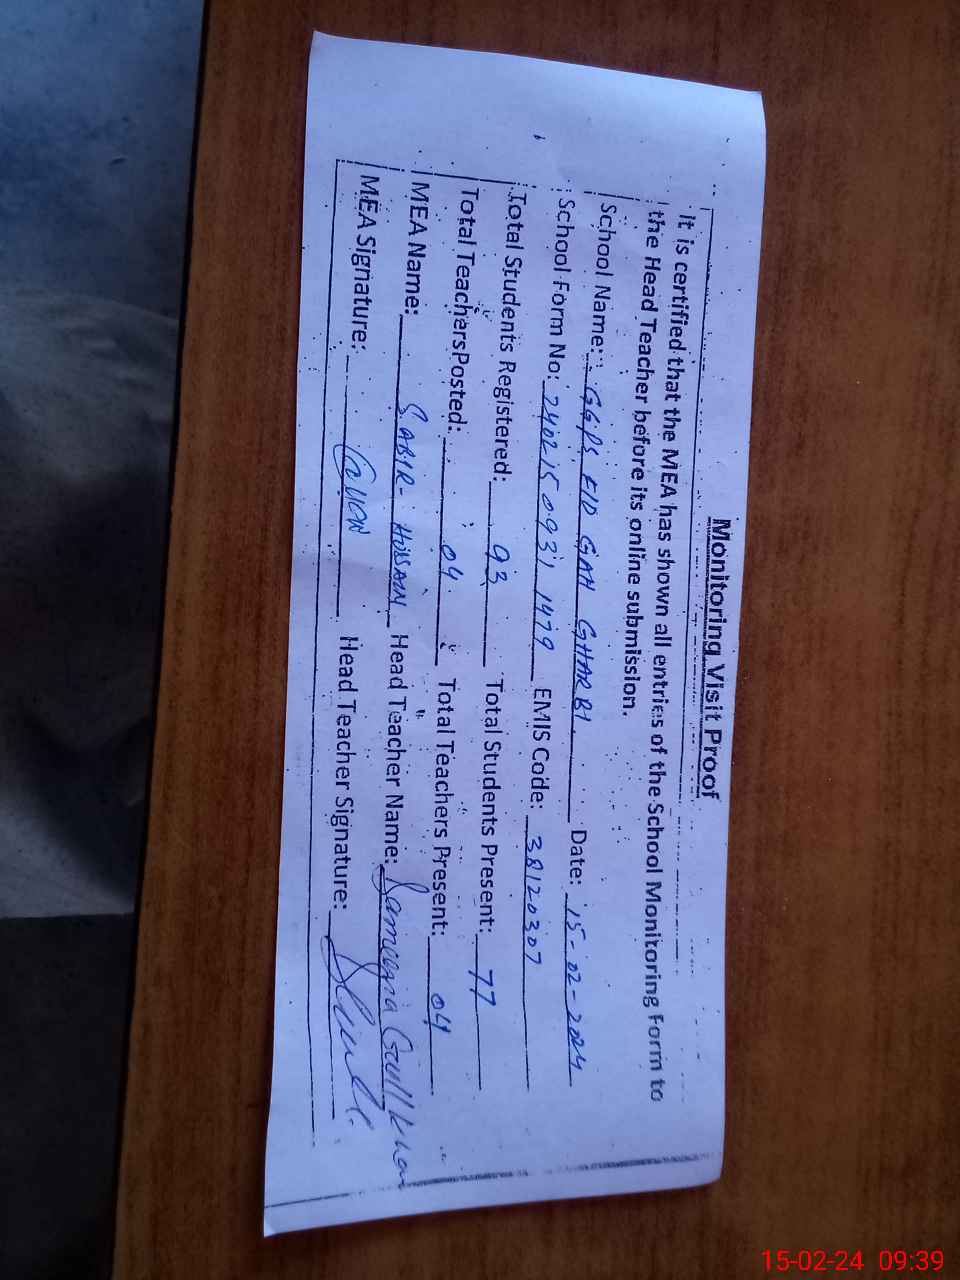 Monitoring Visit Proof
It is certified that the MEA has shown all entries of the School Monitoring Form to
the Head Teacher before its online submission.
School Name: GGPS EID GAH GHARBI Date: 15-02-2024
School Form No: 240215 0931 1479 EMIS Code: 38120307
Total Students Registered: 93 Total Students Present: 77
Total TeachersPosted: 04 Total Teachers Present: 04
MEA Name: SABIR HUSSAIN Head Teacher Name: Sameena Gull Khan
MEA Signature: Head Teacher Signature:
15-02-24 09:39